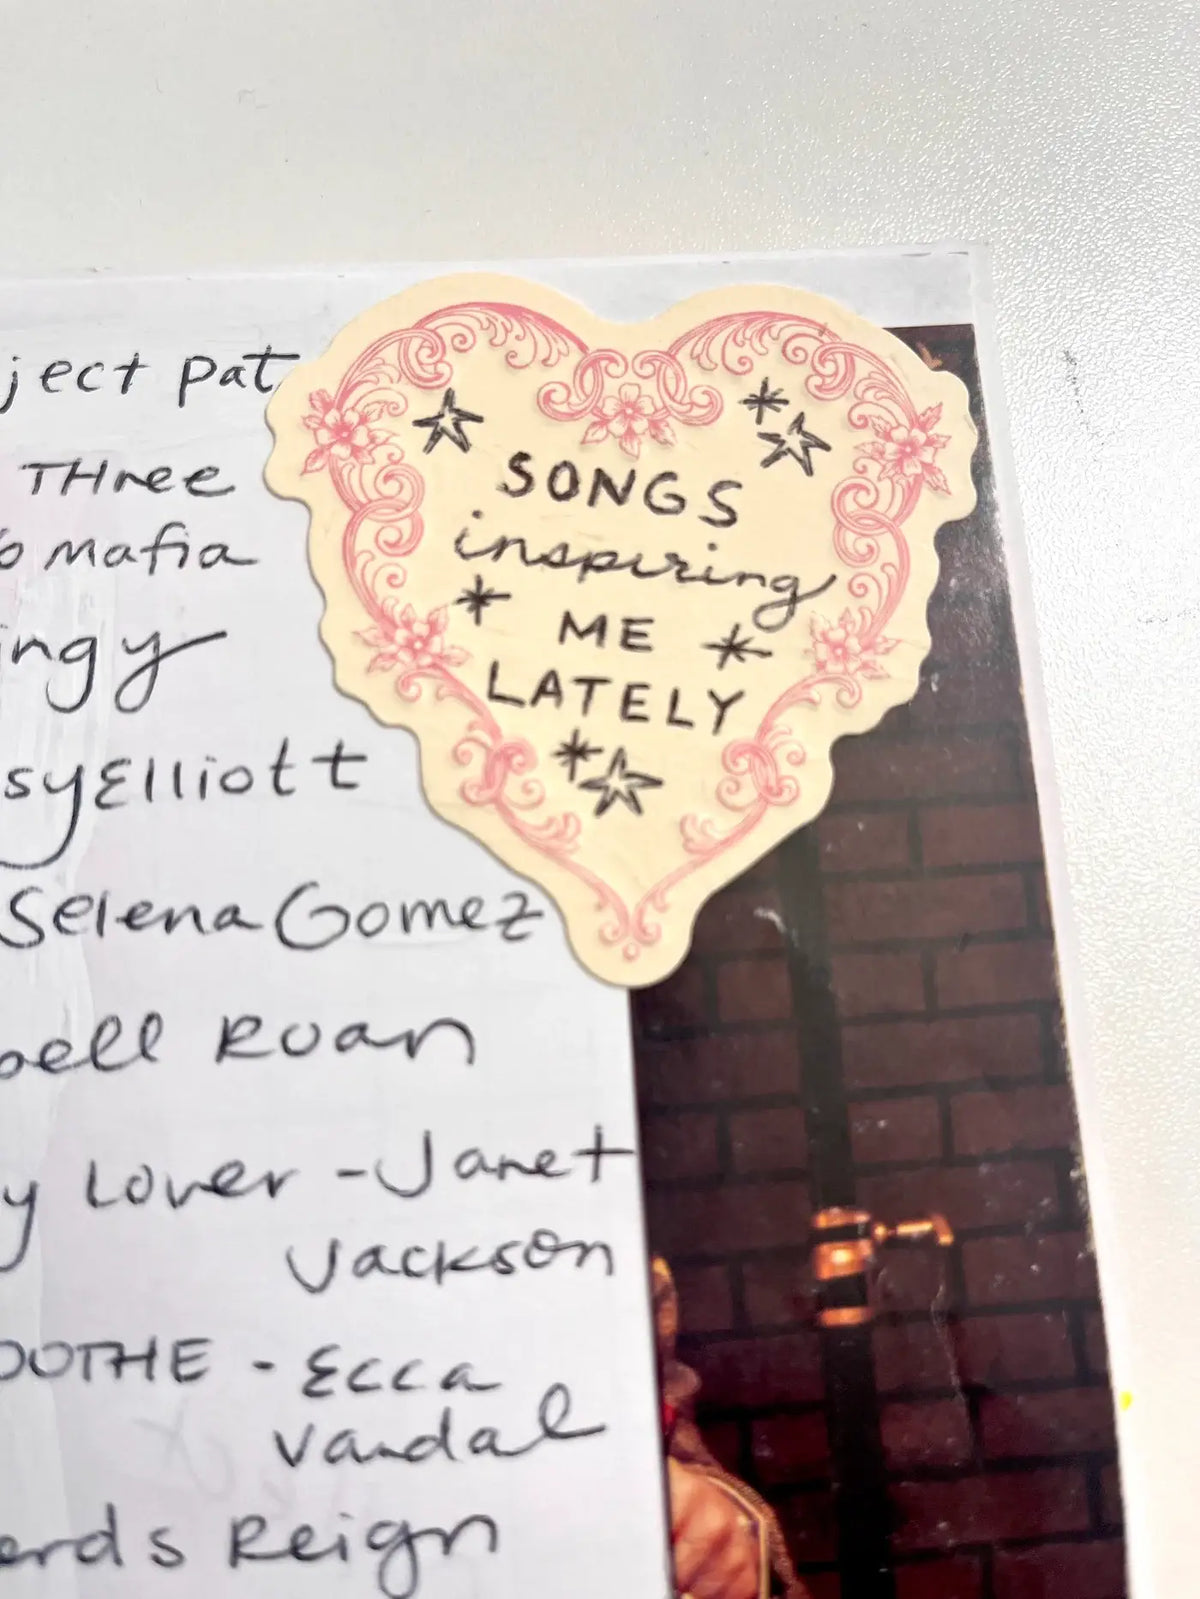 ject pat
THree
o mafia
ingy
syElliott
Selena Gomez
bell Ruan
y Lover - Janet
Jackson
OOTHE - Ecca
Vandal
erds Reign
SONGS
inspiring
ME
LATELY